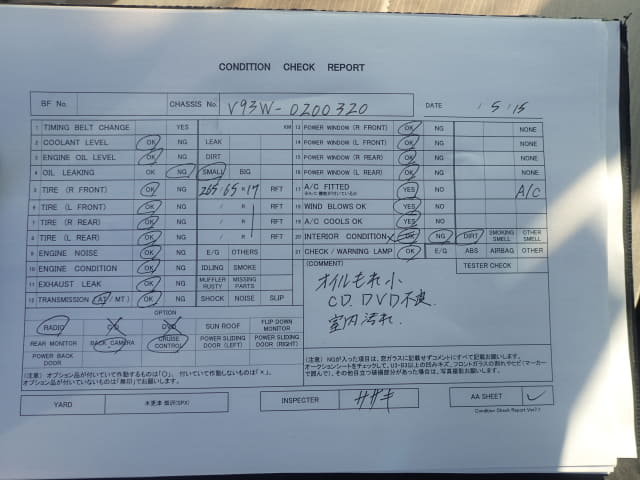 CONDITION CHECK REPORT
BF No. CHASSIS No. V93W-0200320 DATE / 5/15
1 TIMING BELT CHANGE YES KM
2 COOLANT LEVEL OK NG LEAK
3 ENGINE OIL LEVEL OK NG DIRT
4 OIL LEAKING OK NG SMALL BIG
5 TIRE (R FRONT) OK NG 265/65 R 17 RFT
6 TIRE (L FRONT) OK NG / R RFT
7 TIRE (R REAR) OK NG / R RFT
8 TIRE (L REAR) OK NG / R RFT
9 ENGINE NOISE OK NG E/G OTHERS
10 ENGINE CONDITION OK NG IDLING SMOKE
11 EXHAUST LEAK OK NG MUFFLER RUSTY MISSING PARTS
12 TRANSMISSION (AT / MT) OK NG SHOCK NOISE SLIP
13 POWER WINDOW (R FRONT) OK NG NONE
14 POWER WINDOW (L FRONT) OK NG NONE
15 POWER WINDOW (R REAR) OK NG NONE
16 POWER WINDOW (L REAR) OK NG NONE
17 A/C FITTED YES NG A/C
18 WIND BLOWS OK YES NG
19 A/C COOLS OK YES NG
20 INTERIOR CONDITION OK NG DIRT SMOKING SMELL OTHER SMELL
21 CHECK / WARNING LAMP OK E/G ABS AIRBAG OTHER
(COMMENT) TESTER CHECK
オイルもれ小
CD. DVD不良
室内汚れ.
OPTION
RADIO CD DVD SUN ROOF FLIP DOWN MONITOR
REAR MONITOR BACK CAMERA CRUISE CONTROL POWER SLIDING DOOR (LEFT) POWER SLIDING DOOR (RIGHT)
POWER BACK DOOR
(注意) オプション品が付いていて作動するものは「○」、付いていて作動しないものは「×」、
オプション品が付いていないものは「無印」でお願いします。
(注意) NGが入った項目は、窓ガラスに記載せずコメントにすべて記載お願いします。
オークションシートをチェックして、U3・B3以上の凹みキズ、フロントガラスの割れやヒビ(マーカー
で囲んで)、その他目立つ破損部分があった場合は、写真撮影お願いします。
YARD 木更津 金沢(SPX) INSPECTER ササキ AA SHEET ✓
Condition Check Report Ver7.1